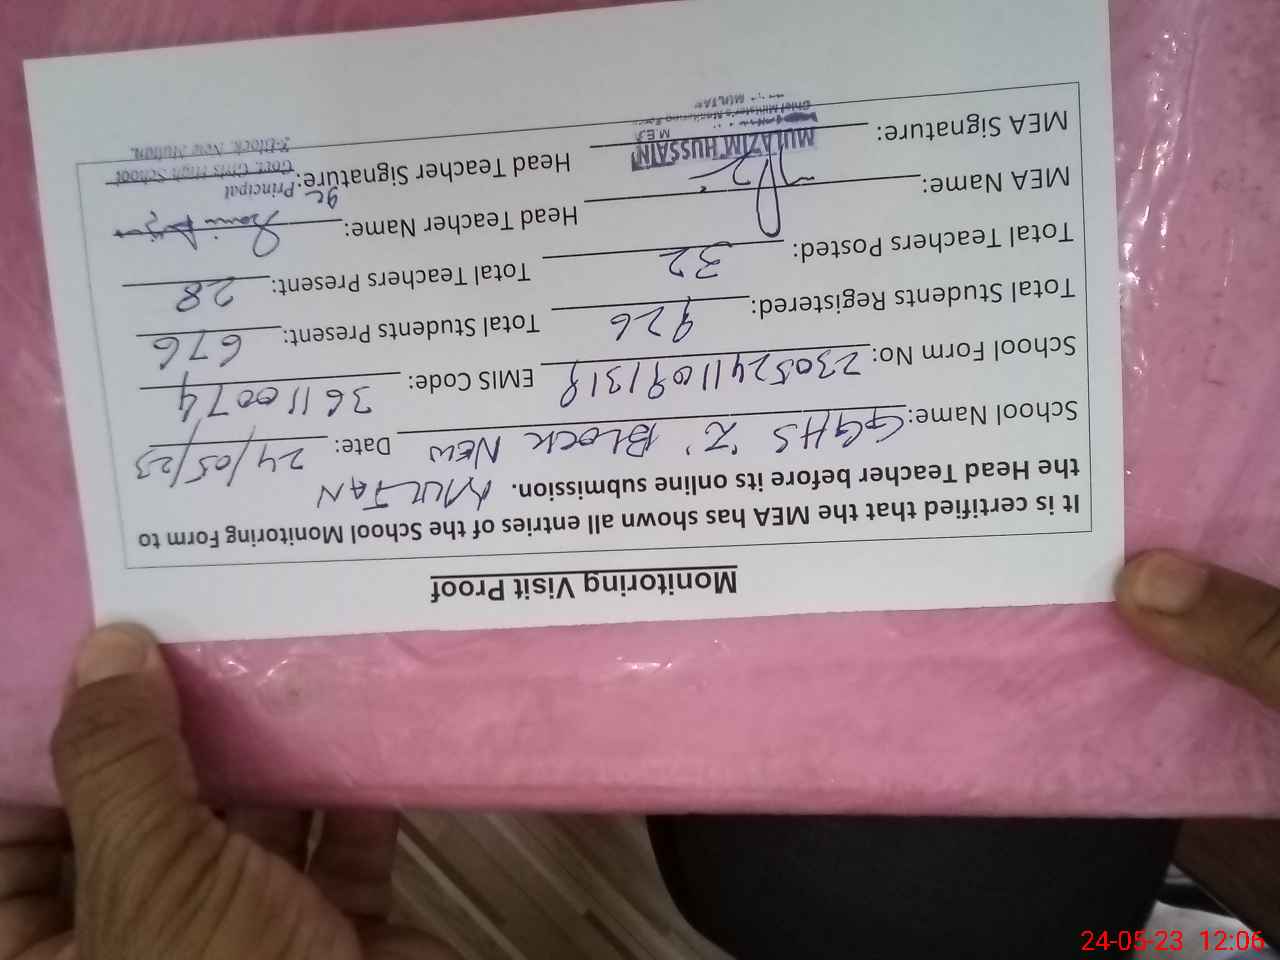 Monitoring Visit Proof
It is certified that the MEA has shown all entries of the School Monitoring Form to
the Head Teacher before its online submission. MULTAN
School Name: GGHS 'Z' BLOCK NEW Date: 24/05/23
School Form No: 23052411091319 EMIS Code: 36110074
Total Students Registered: 926 Total Students Present: 676
Total Teachers Posted: 32 Total Teachers Present: 28
MEA Name: Head Teacher Name:
MEA Signature: Head Teacher Signature:
MULAZIM HUSSAIN
Principal
Govt. Girls High School
Z-Block, New Multan.
24-05-23 12:06